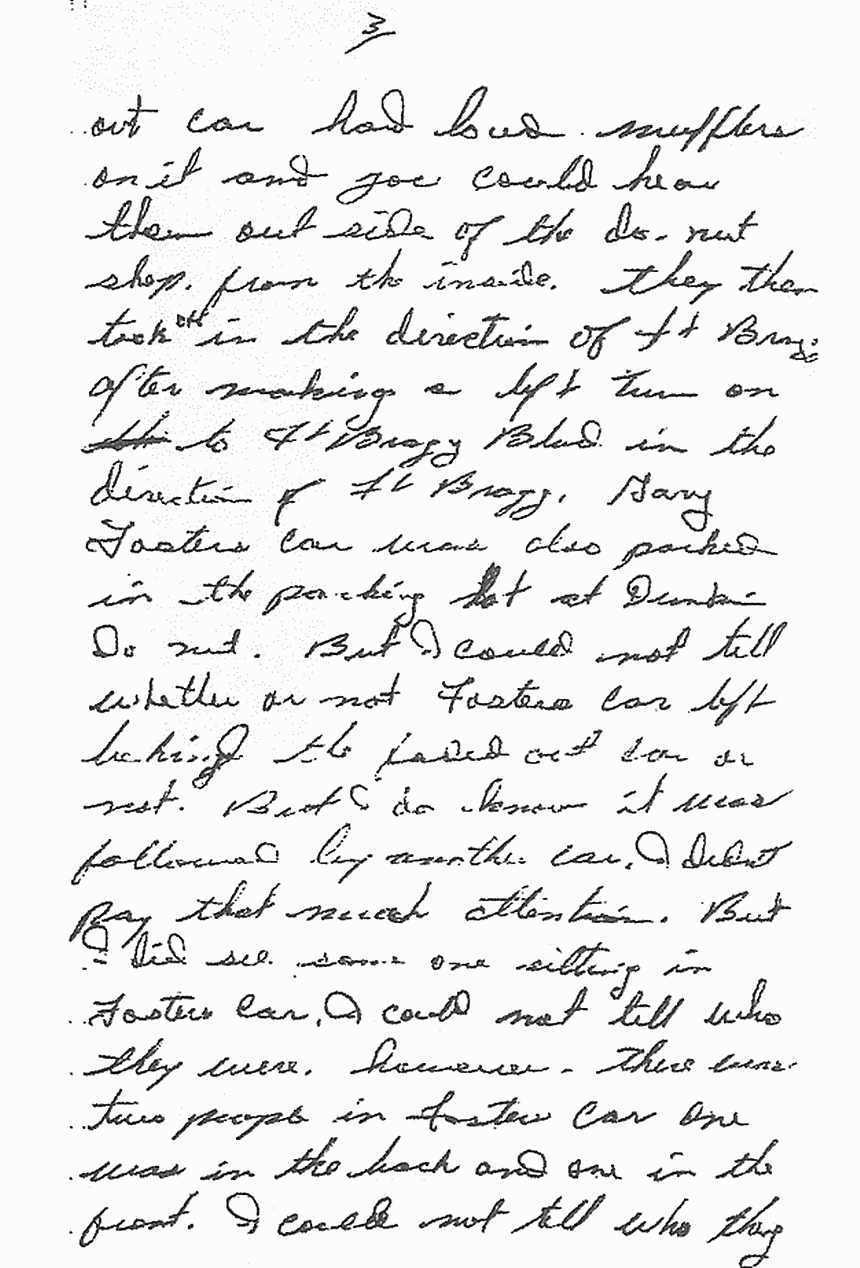 3
out car had loud mufflers
on it and you could hear
them out side of the do-nut
shop. from the inside. they then
took off in the direction of Ft Bragg
after making a left turn on
to Ft Bragg Blvd in the
direction of Ft Bragg. Gary
Fosters car was also parked
in the parking lot at Dunkin
Do nut. But I could not tell
whether or not Fosters car left
behind the faded out car or
not. But I do know it was
followed by another car. I didnt
pay that much attention. But
I did see some one sitting in
Fosters car. I could not tell who
they were. however - there was
two people in Fosters car one
was in the back and one in the
front. I could not tell who they